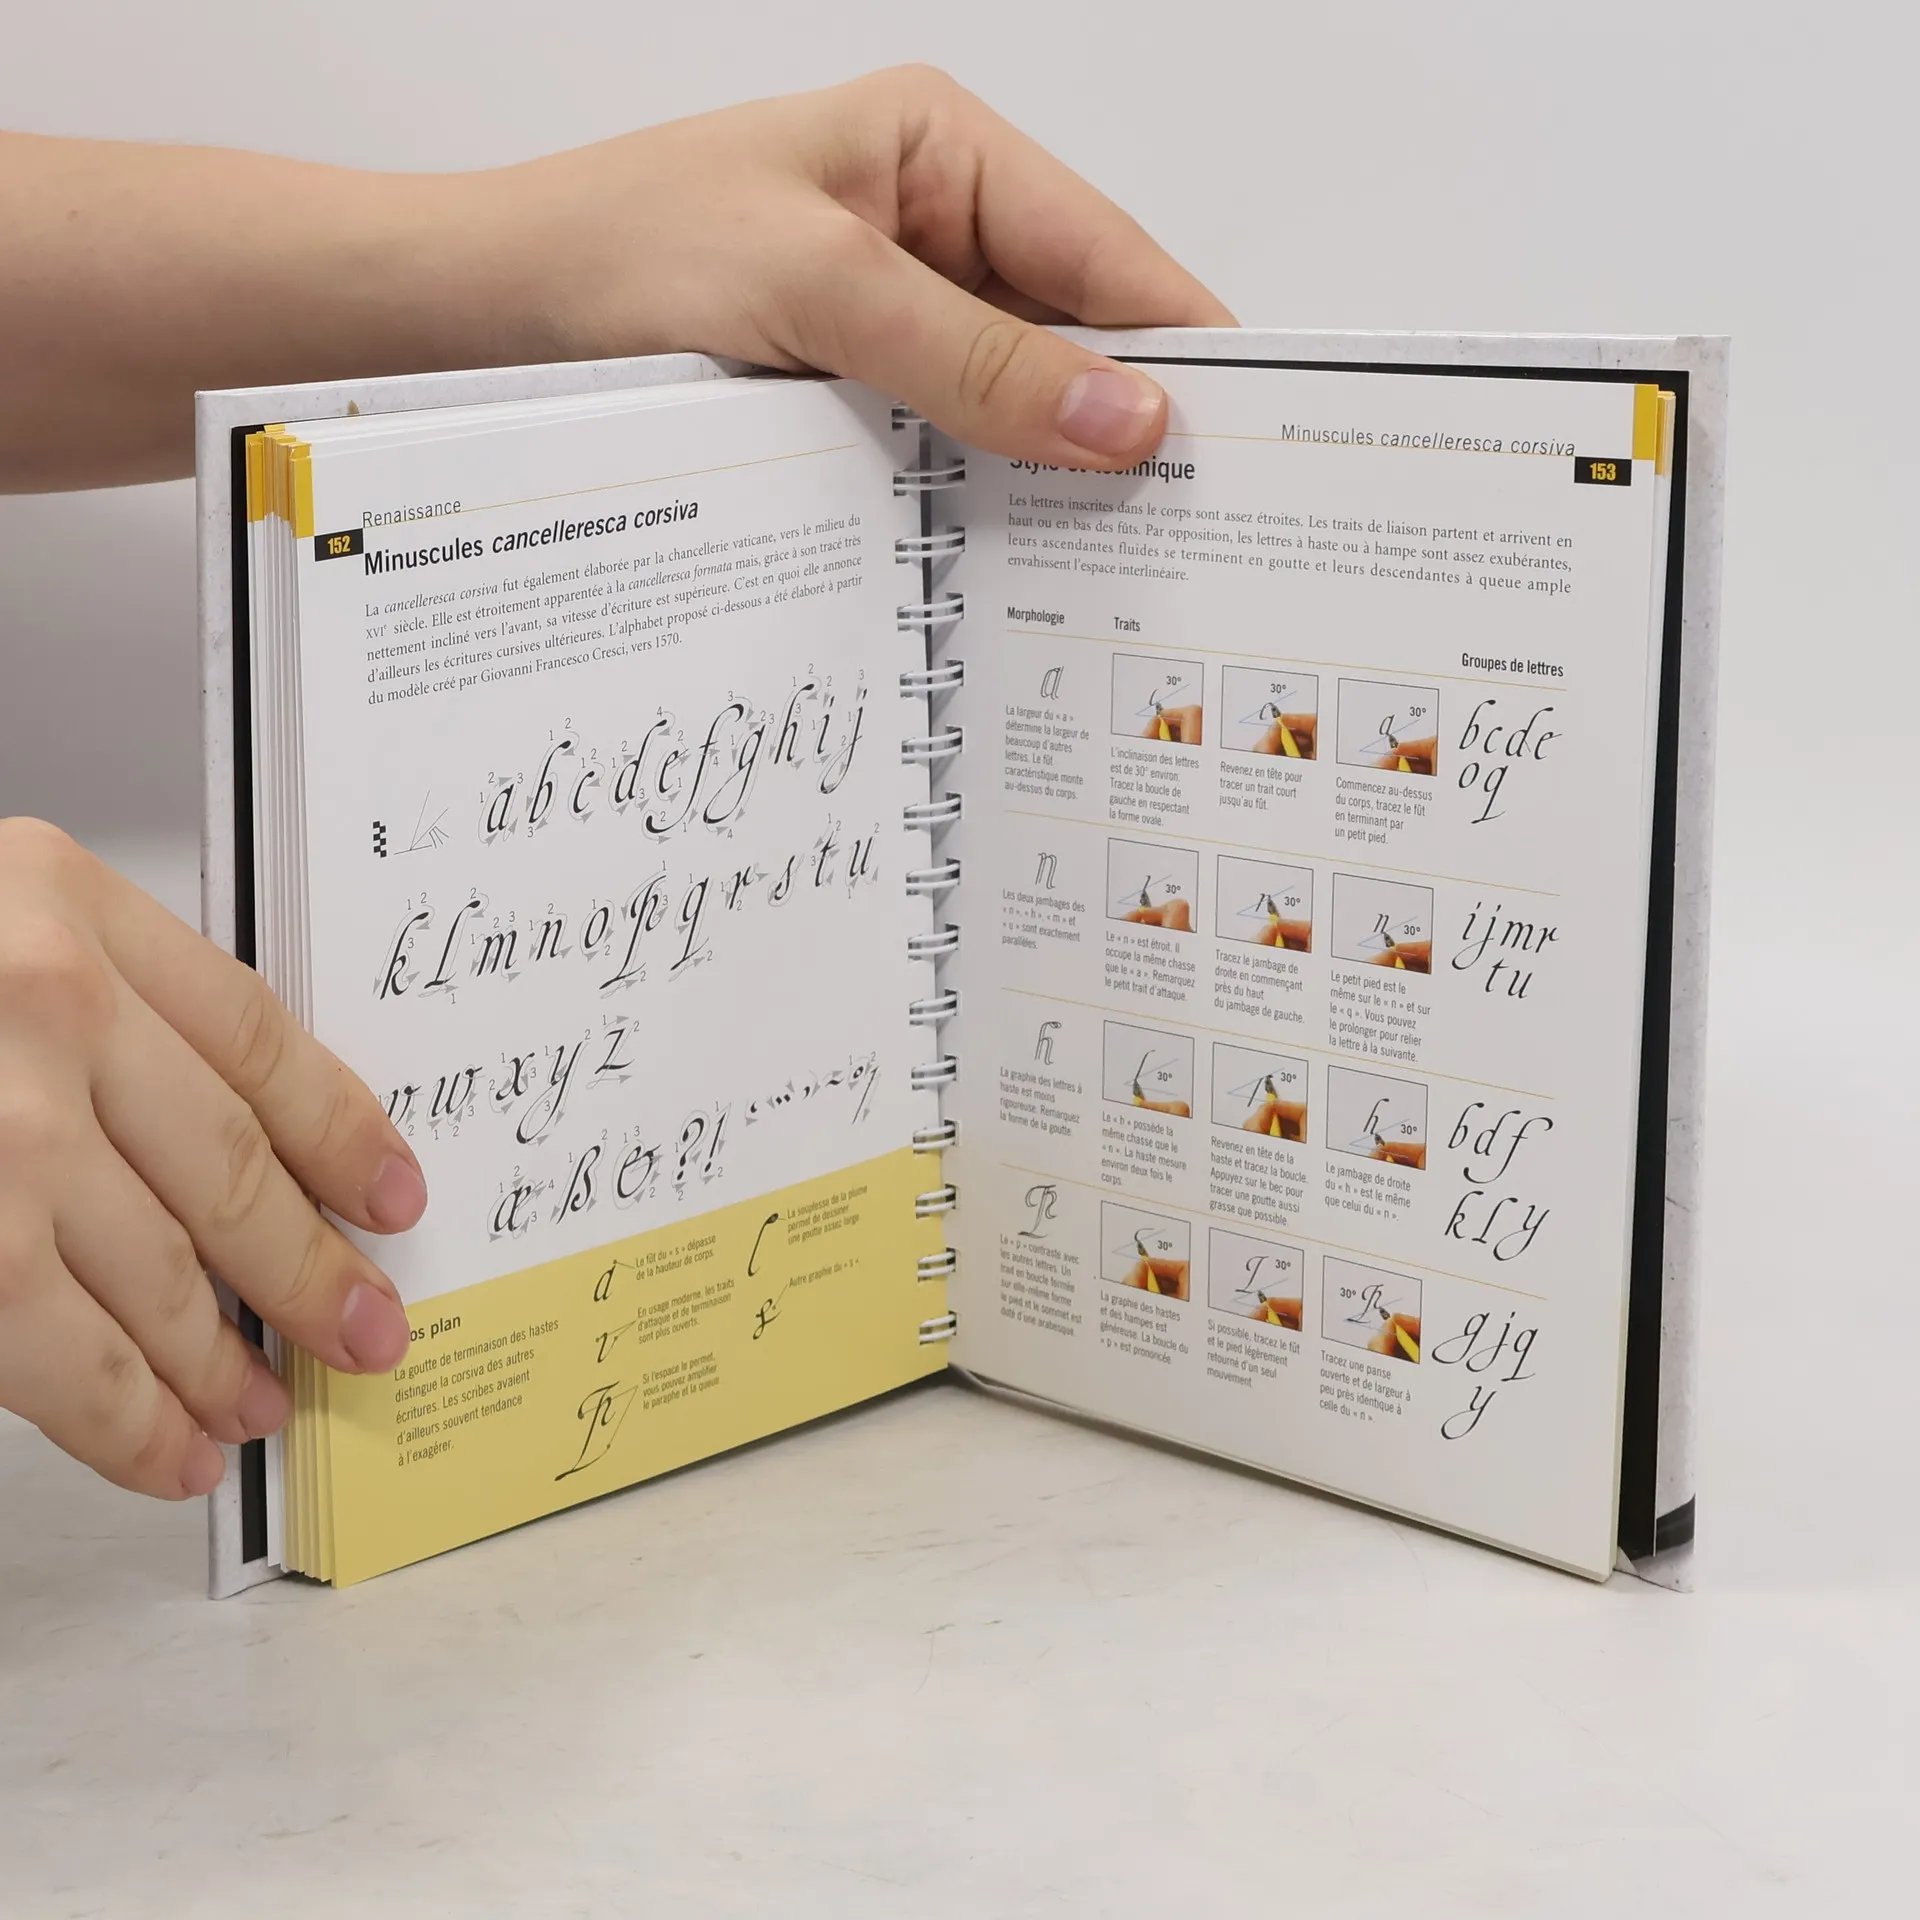 Renaissance
152
Minuscules cancelleresca corsiva
La cancelleresca corsiva fut également élaborée par la chancellerie vaticane, vers le milieu du
XVIe siècle. Elle est étroitement apparentée à la cancelleresca formata mais, grâce à son tracé très
nettement incliné vers l'avant, sa vitesse d'écriture est supérieure. C'est en quoi elle annonce
d'ailleurs les écritures cursives ultérieures. L'alphabet proposé ci-dessous a été élaboré à partir
du modèle créé par Giovanni Francesco Cresci, vers 1570.
a b c d e f g h i j
k l m n o p q r s t u
v w x y z
æ ß & ? !
os plan
La goutte de terminaison des hastes
distingue la corsiva des autres
écritures. Les scribes avaient
d'ailleurs souvent tendance
à l'exagérer.
Le fût du « s » dépasse
de la hauteur du corps.
En usage moderne, les traits
d'attaque et de terminaison
sont plus ouverts.
Si l'espace le permet,
vous pouvez amplifier
le paraphe et la queue
La souplesse de la plume
permet de dessiner
une goutte assez large
Autre graphie du « s »
Minuscules cancelleresca corsiva
153
Style et technique
Les lettres inscrites dans le corps sont assez étroites. Les traits de liaison partent et arrivent en
haut ou en bas des fûts. Par opposition, les lettres à haste ou à hampe sont assez exubérantes,
leurs ascendantes fluides se terminent en goutte et leurs descendantes à queue ample
envahissent l'espace interlinéaire.
Morphologie
Traits
Groupes de lettres
a
La largeur du « a »
détermine la largeur de
beaucoup d'autres
lettres. Le fût
caractéristique monte
au-dessus du corps.
30°
L'inclinaison des lettres
est de 30° environ.
Tracez la boucle de
gauche en respectant
la forme ovale.
30°
Revenez en tête pour
tracer un trait court
jusqu'au fût.
30°
Commencez au-dessus
du corps, tracez le fût
en terminant par
un petit pied.
bcde
oq
n
Les deux jambages des
« n », « h », « m » et
« u » sont exactement
parallèles.
30°
Le « n » est étroit. Il
occupe la même chasse
que le « a ». Remarquez
le petit trait d'attaque.
30°
Tracez le jambage de
droite en commençant
près du haut
du jambage de gauche.
30°
Le petit pied est le
même sur le « n » et sur
le « q ». Vous pouvez
le prolonger pour relier
la lettre à la suivante.
ijmr
tu
h
La graphie des lettres à
haste est moins
rigoureuse. Remarquez
la forme de la goutte.
30°
Le « h » possède la
même chasse que le
« n ». La haste mesure
environ deux fois le
corps.
30°
Revenez en tête de la
haste et tracez la boucle.
Appuyez sur le bec pour
tracer une goutte aussi
grasse que possible.
30°
Le jambage de droite
du « h » est le même
que celui du « n ».
bdf
kly
p
Le « p » contraste avec
les autres lettres. Un
trait en boucle fermée
sur elle-même forme
le pied et le sommet est
doté d'une arabesque.
30°
La graphie des hastes
et des hampes est
généreuse. La boucle du
« p » est prononcée.
30°
Si possible, tracez le fût
et le pied légèrement
retourné d'un seul
mouvement.
30°
Tracez une panse
ouverte et de largeur à
peu près identique à
celle du « n ».
gjq
y